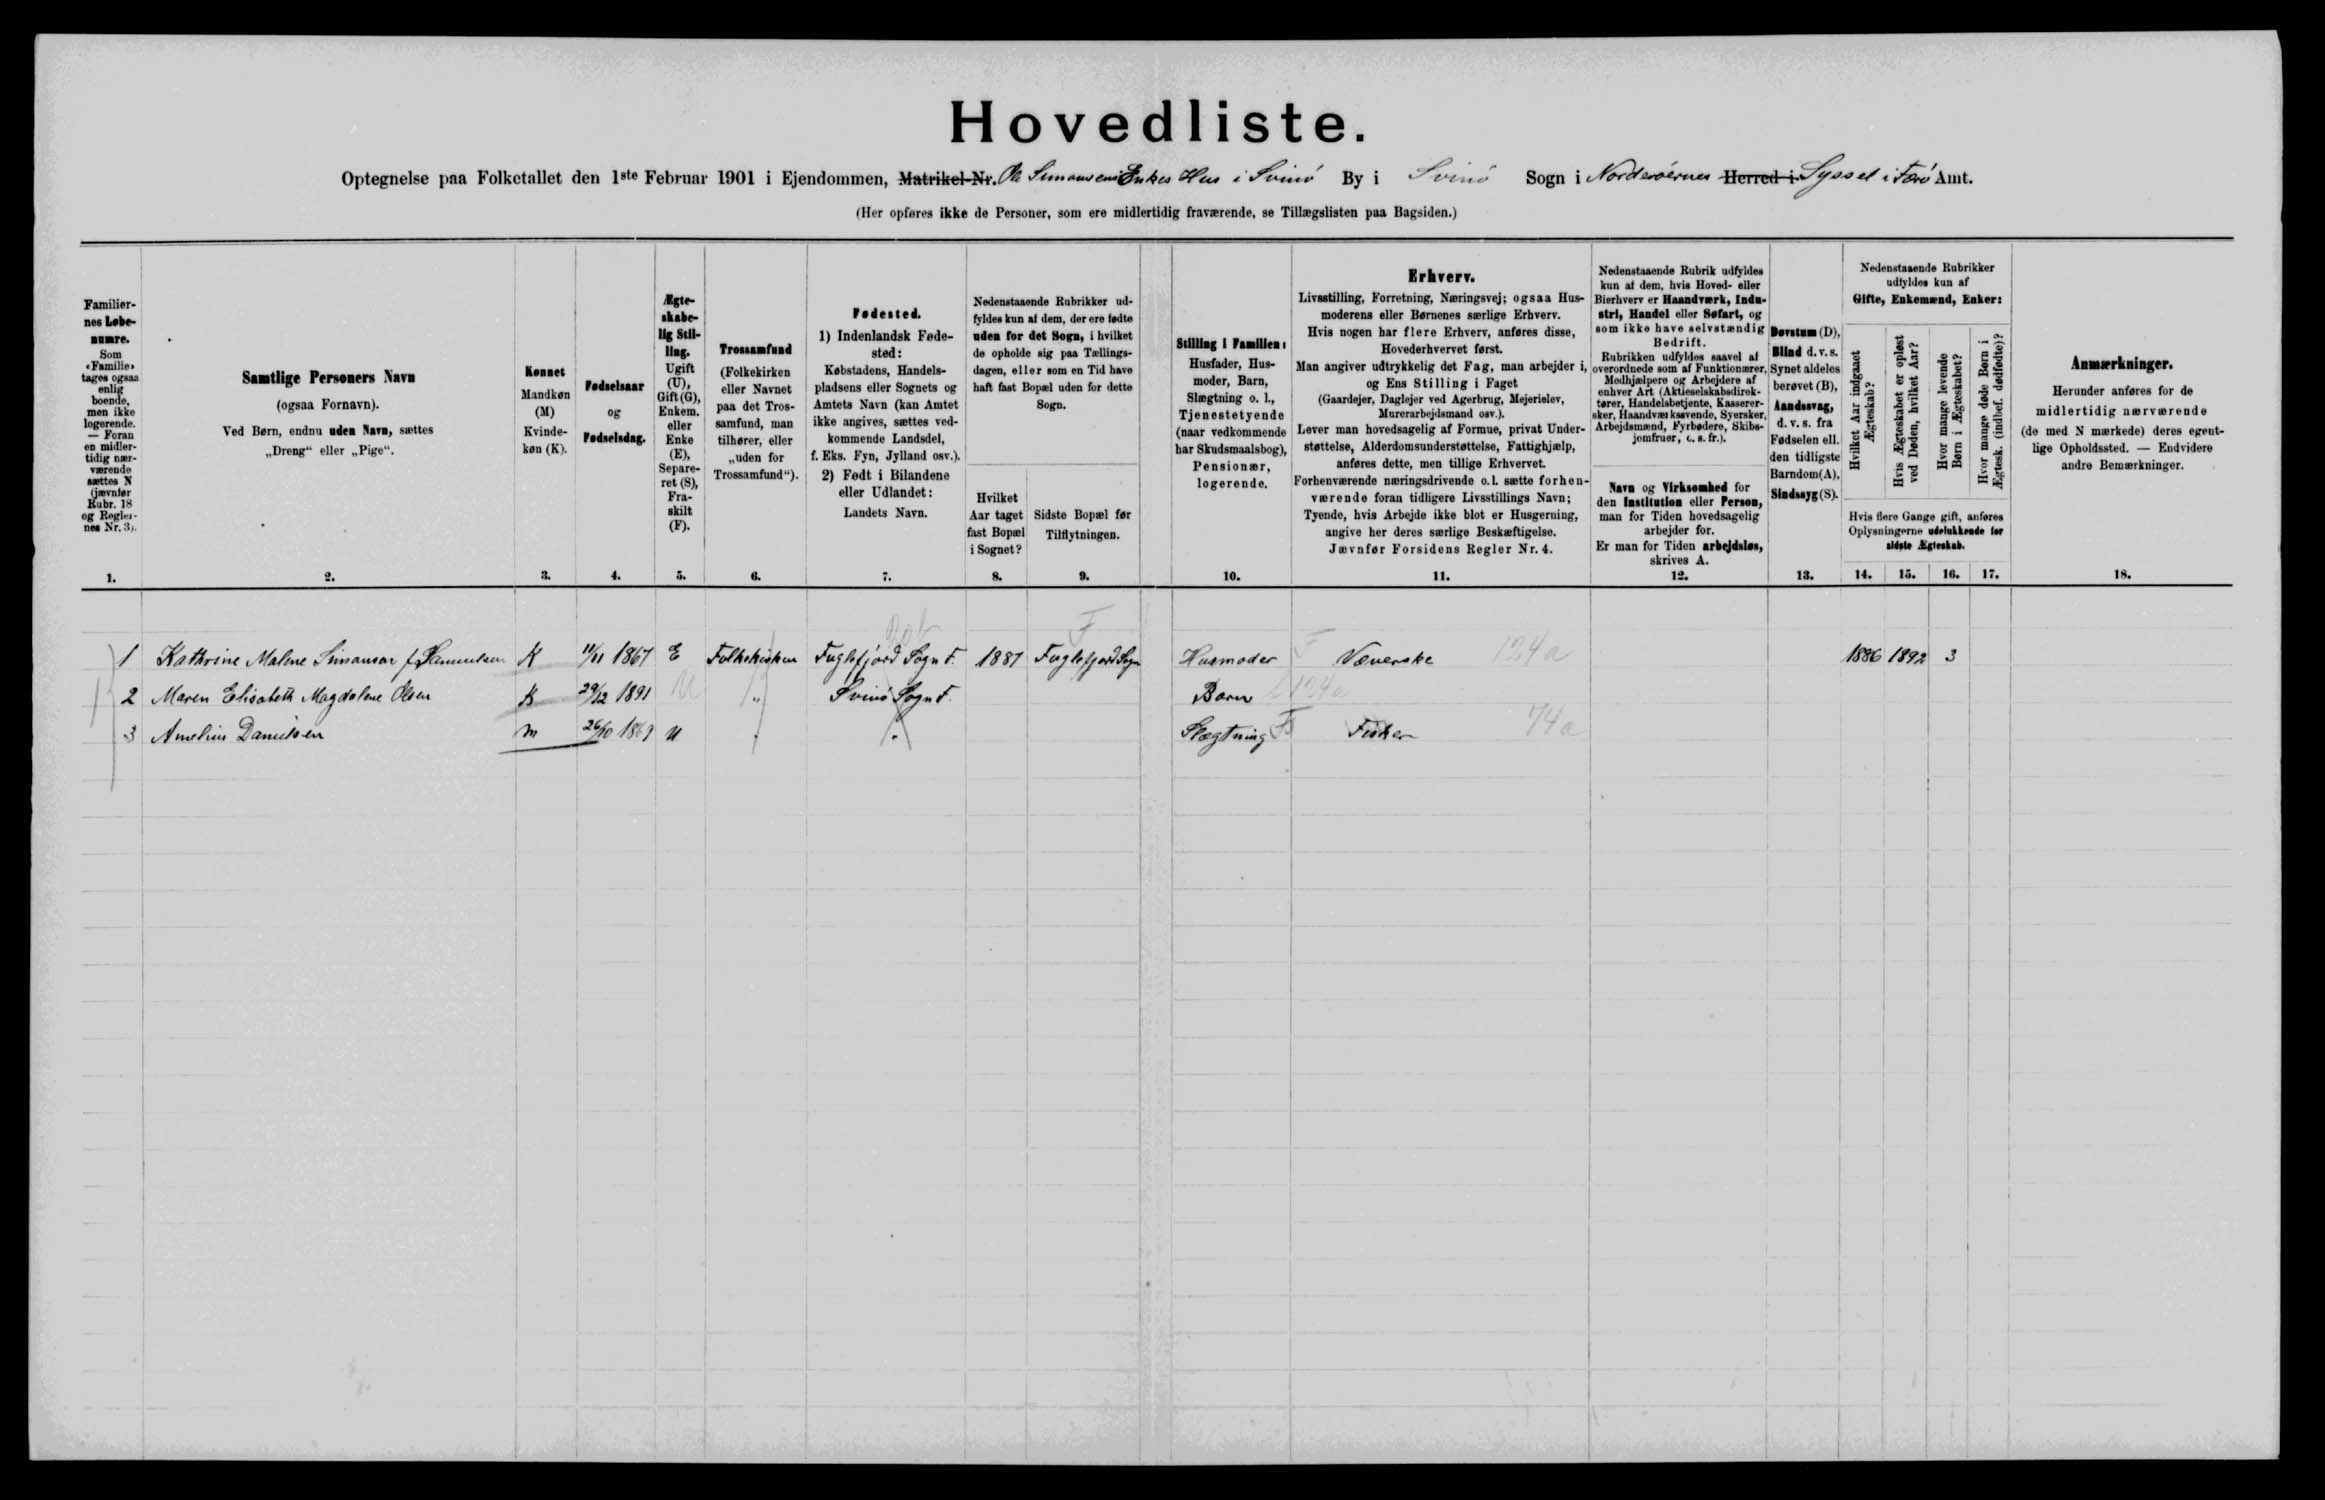 Hovedliste.
Optegnelse paa Folketallet den 1ste Februar 1901 i Ejendommen, Matrikel-Nr. Ole Simonsens Enkes Hus i Svinø By i Svinø Sogn i Norderøernes Herred i Syssel i Færø Amt.
(Her opføres ikke de Personer, som ere midlertidig fraværende, se Tillægslisten paa Bagsiden.)
Familier-
nes Løbe-
numre.
Som
«Familie»
tages ogsaa
enlig
boende,
men ikke
logerende.
— Foran
en midler-
tidig nær-
værende
sættes N
(jævnfør
Rubr. 18
og Regler-
nes Nr. 3).
1.
Samtlige Personers Navn
(ogsaa Fornavn).
Ved Børn, endnu uden Navn, sættes
„Dreng“ eller „Pige“.
2.
Kønnet
Mandkøn
(M)
Kvinde-
køn (K).
3.
Fødselsaar
og
Fødselsdag.
4.
Ægte-
skabe-
lig Stil-
ling.
Ugift
(U),
Gift (G),
Enkem.
eller
Enke
(E),
Separe-
ret (S),
Fra-
skilt
(F).
5.
Trossamfund
(Folkekirken
eller Navnet
paa det Tros-
samfund, man
tilhører, eller
„uden for
Trossamfund“).
6.
Fødested.
1) Indenlandsk Føde-
sted:
Købstadens, Handels-
pladsens eller Sognets og
Amtets Navn (kan Amtet
ikke angives, sættes ved-
kommende Landsdel,
f. Eks. Fyn, Jylland osv.).
2) Født i Bilandene
eller Udlandet:
Landets Navn.
7.
Nedenstaaende Rubrikker ud-
fyldes kun af dem, der ere fødte
uden for det Sogn, i hvilket
de opholde sig paa Tællings-
dagen, eller som en Tid have
haft fast Bopæl uden for dette
Sogn.
Hvilket
Aar taget
fast Bopæl
i Sognet?
8.
Sidste Bopæl før
Tilflytningen.
9.
Stilling i Familien:
Husfader, Hus-
moder, Barn,
Slægtning o. l.,
Tjenestetyende
(naar vedkommende
har Skudsmaalsbog),
Pensionær,
logerende.
10.
Erhverv.
Livsstilling, Forretning, Næringsvej; ogsaa Hus-
moderens eller Børnenes særlige Erhverv.
Hvis nogen har flere Erhverv, anføres disse,
Hovederhvervet først.
Man angiver udtrykkelig det Fag, man arbejder i,
og Ens Stilling i Faget
(Gaardejer, Daglejer ved Agerbrug, Mejerielev,
Murerarbejdsmand osv.).
Lever man hovedsagelig af Formue, privat Under-
støttelse, Alderdomsunderstøttelse, Fattighjælp,
anføres dette, men tillige Erhvervet.
Forhenværende næringsdrivende o. l. sætte forhen-
værende foran tidligere Livsstillings Navn;
Tyende, hvis Arbejde ikke blot er Husgerning,
angive her deres særlige Beskæftigelse.
Jævnfør Forsidens Regler Nr. 4.
11.
Nedenstaaende Rubrik udfyldes
kun af dem, hvis Hoved- eller
Bierhverv er Haandværk, Indu-
stri, Handel eller Søfart, og
som ikke have selvstændig
Bedrift.
Rubrikken udfyldes saavel af
overordnede som af Funktionærer,
Medhjælpere og Arbejdere af
enhver Art (Aktieselskabsdirek-
tører, Handelsbetjente, Kasserer-
sker, Haandværkssvende, Syersker,
Arbejdsmænd, Fyrbødere, Skibs-
jomfruer, o. s. fr.).
Navn og Virksomhed for
den Institution eller Person,
man for Tiden hovedsagelig
arbejder for.
Er man for Tiden arbejdsløs,
skrives A.
12.
Døvstum (D),
Blind d. v. s.
Synet aldeles
berøvet (B),
Aandssvag,
d. v. s. fra
Fødselen ell.
den tidligste
Barndom (A),
Sindssyg (S).
13.
Nedenstaaende Rubrikker
udfyldes kun af
Gifte, Enkemænd, Enker:
Hvilket Aar indgaaet
Ægteskab?
Hvis Ægteskabet er opløst
ved Døden, hvilket Aar?
Hvor mange levende
Børn i Ægteskabet?
Hvor mange døde Børn i
Ægtesk. (indbef. dødfødte)?
Hvis flere Gange gift, anføres
Oplysningerne udelukkende for
sidste Ægteskab.
14. 15. 16. 17.
Anmærkninger.
Herunder anføres for de
midlertidig nærværende
(de med N mærkede) deres egent-
lige Opholdssted. — Endvidere
andre Bemærkninger.
18.
1 Kathrine Malene Simonsen f. Samuelsen K 11/11 1867 E Folkekirken Fuglefjord Sogn F. 1887 Fuglefjord Sogn Husmoder F Væverske 124a 1886 1892 3
2 Maren Elisabeth Magdalene Olsen K 29/12 1891 U " Svinø Sogn F. Barn 124a
3 Amelius Danielsen M 26/10 1869 U " " Slægtning Fisker 74a